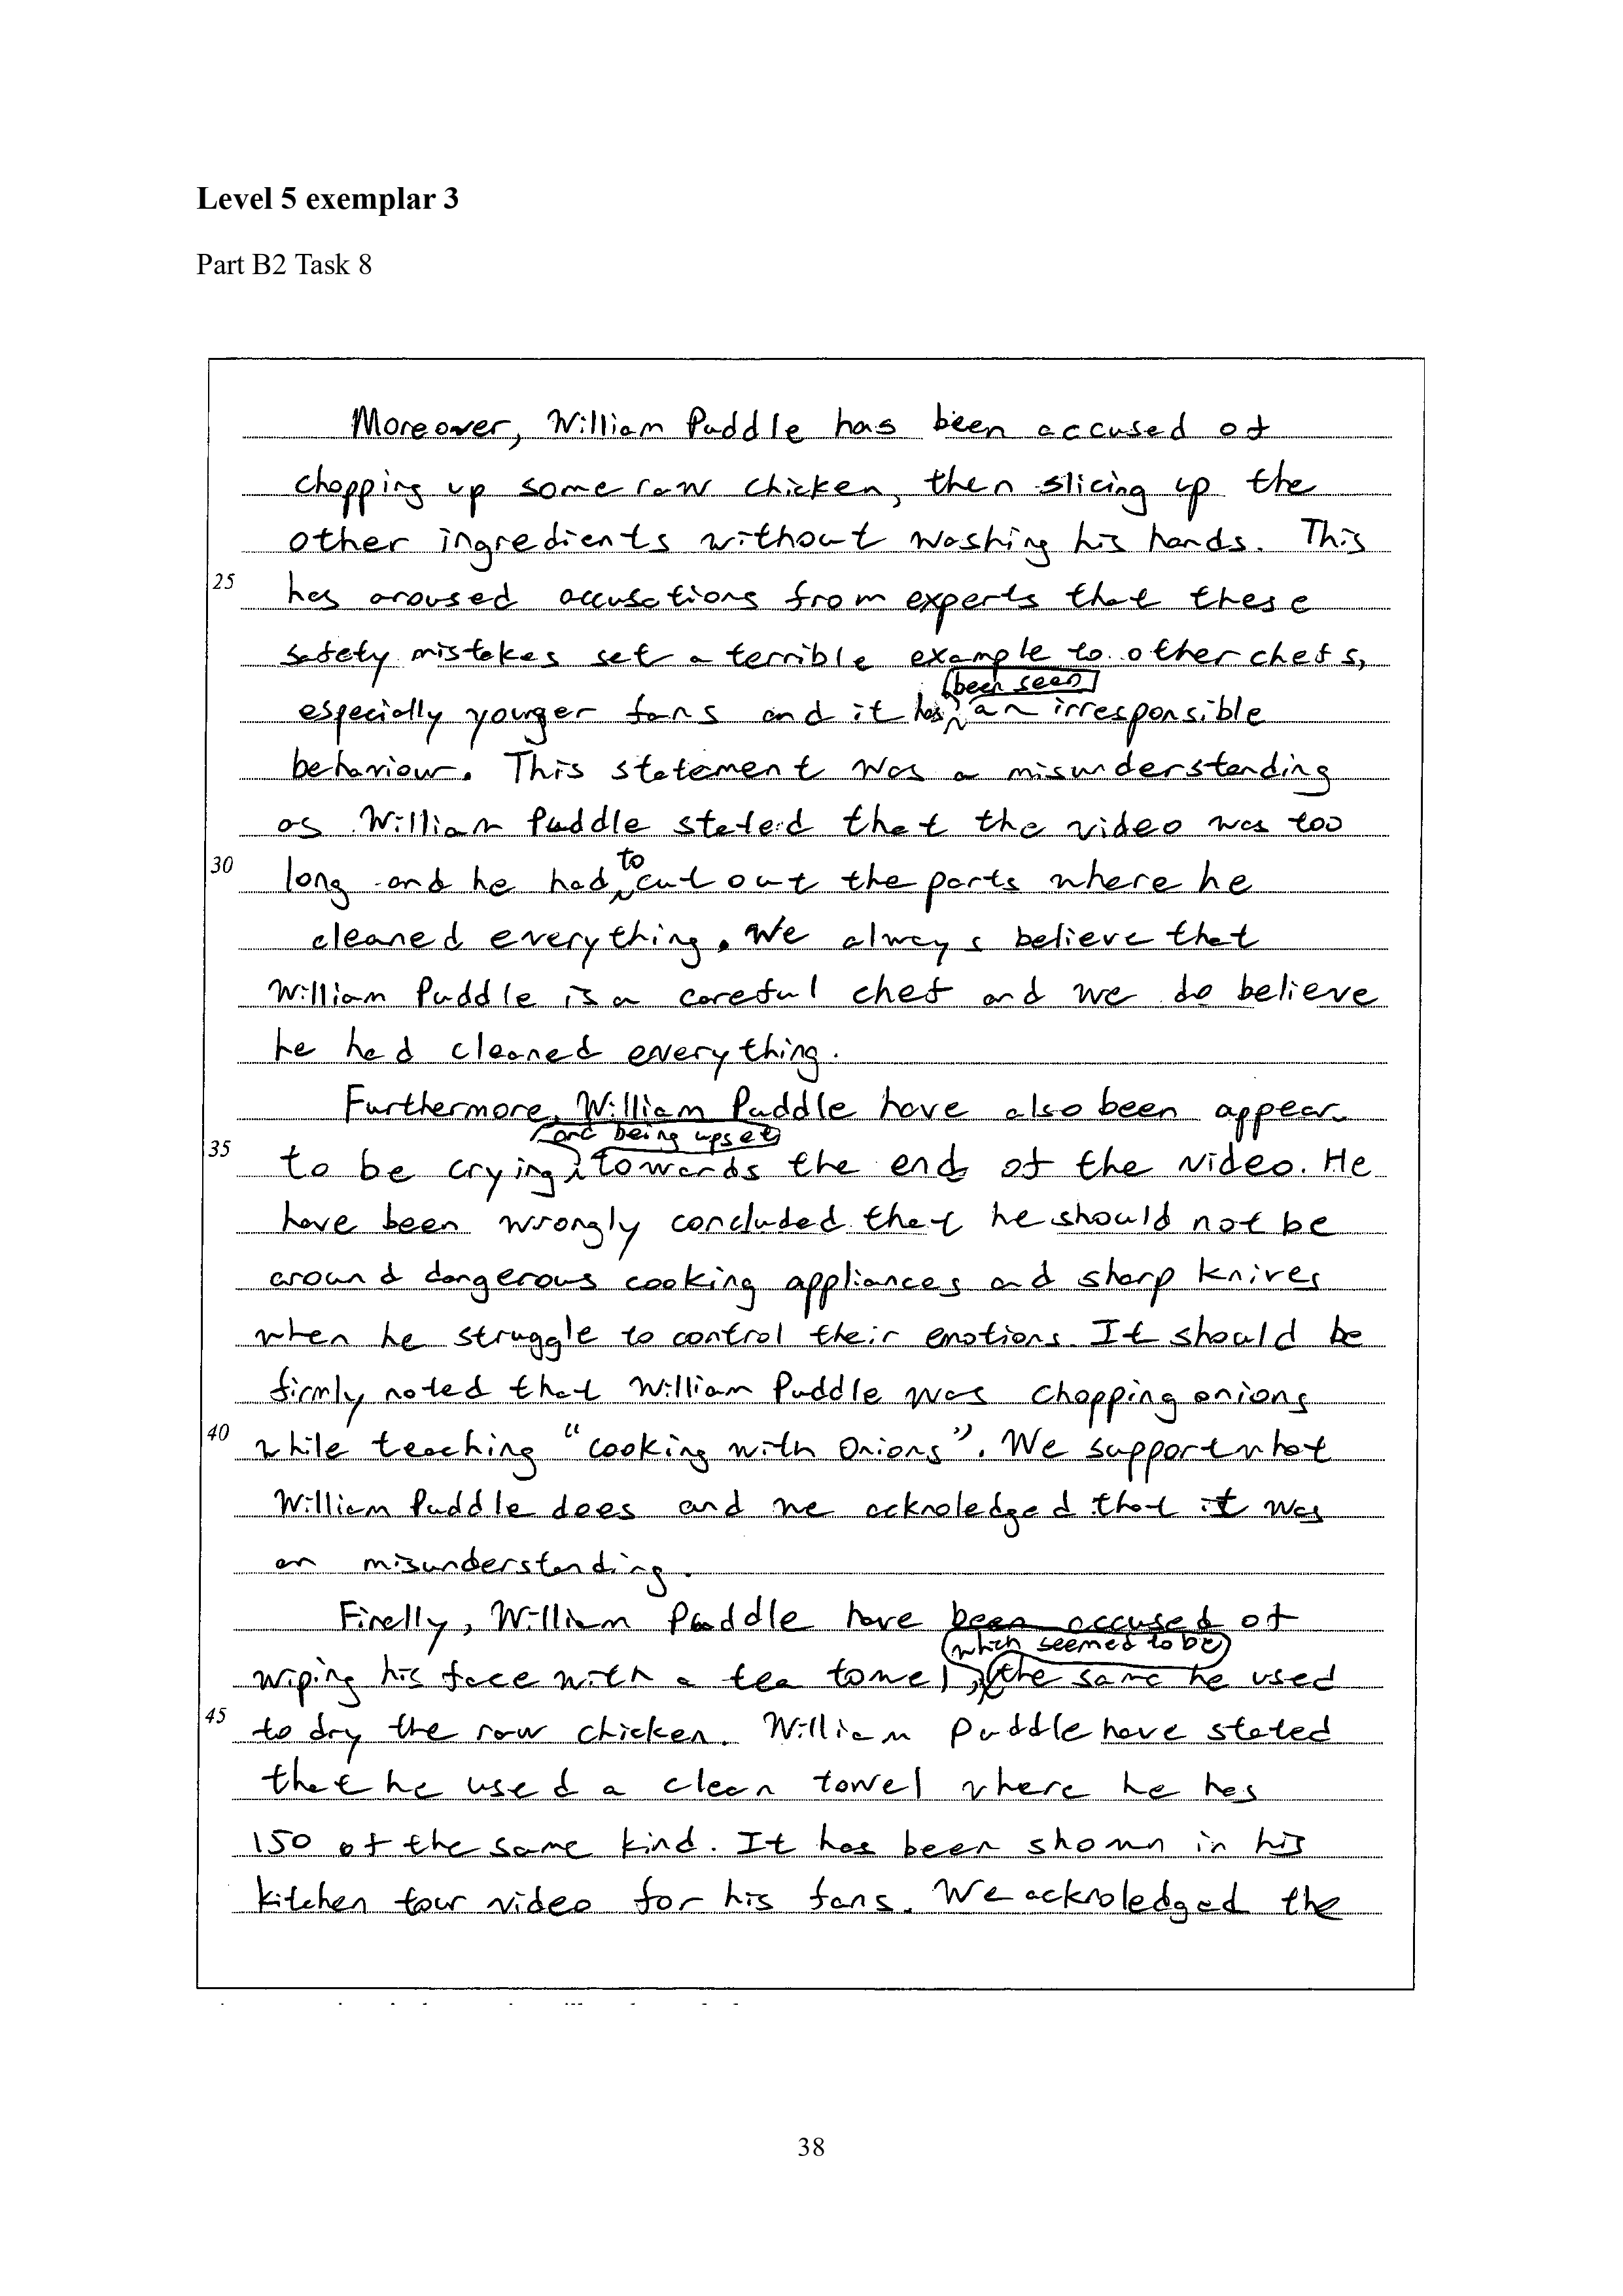 Level 5 exemplar 3
Part B2 Task 8
Moreover, William Puddle has been accused of
chopping up some raw chicken, then slicing up the
other ingredients without washing his hands. This
25 has aroused accusations from experts that these
safety mistakes set a terrible example to other chefs,
especially younger fans and it has been seen an irresponsible
behaviour. This statement was a misunderstanding
as William Puddle stated that the video was too
30 long and he had to cut out the parts where he
cleaned everything. We always believe that
William Puddle is a careful chef and we do believe
he had cleaned everything.
Furthermore, William Puddle have also been appear
35 to be crying and being upset towards the end of the video. He
have been wrongly concluded that he should not be
around dangerous cooking appliances and sharp knives
when he struggle to control their emotions. It should be
firmly noted that William Puddle was chopping onions
40 while teaching "cooking with Onions". We support what
William Puddle dees and we ackroledged that it was
an misunderstanding.
Finally, William Puddle have been accused of
wiping his face with a tea towel, which seemed to be the same he used
45 to dry the raw chicken. William Puddle have stated
that he used a clean towel where he has
150 of the same kind. It has been shown in his
kitchen tour video for his fans. We ackroledged the
38